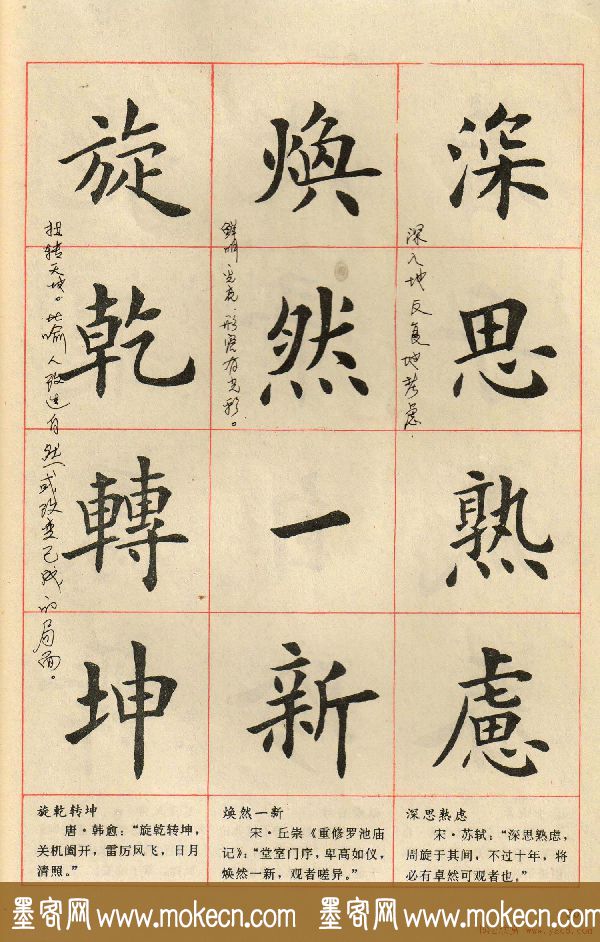 深思熟慮
深入地反复地考虑.
煥然一新
鲜明、光亮 形容有光彩。
旋乾轉坤
扭转天地。比喻人改造自然或改变已成的局面。
深思熟虑
宋·苏轼：“深思熟虑，
周旋于其间，不过十年，将
必有卓然可观者也。”
焕然一新
宋·丘崇《重修罗池庙
记》：“堂室门序，卑高如仪，
焕然一新，观者嗟异。”
旋乾转坤
唐·韩愈：“旋乾转坤，
关机阖开，雷厉风飞，日月
清照。”
墨客网 www.mokecn.com 墨客网 www.mokecn.com